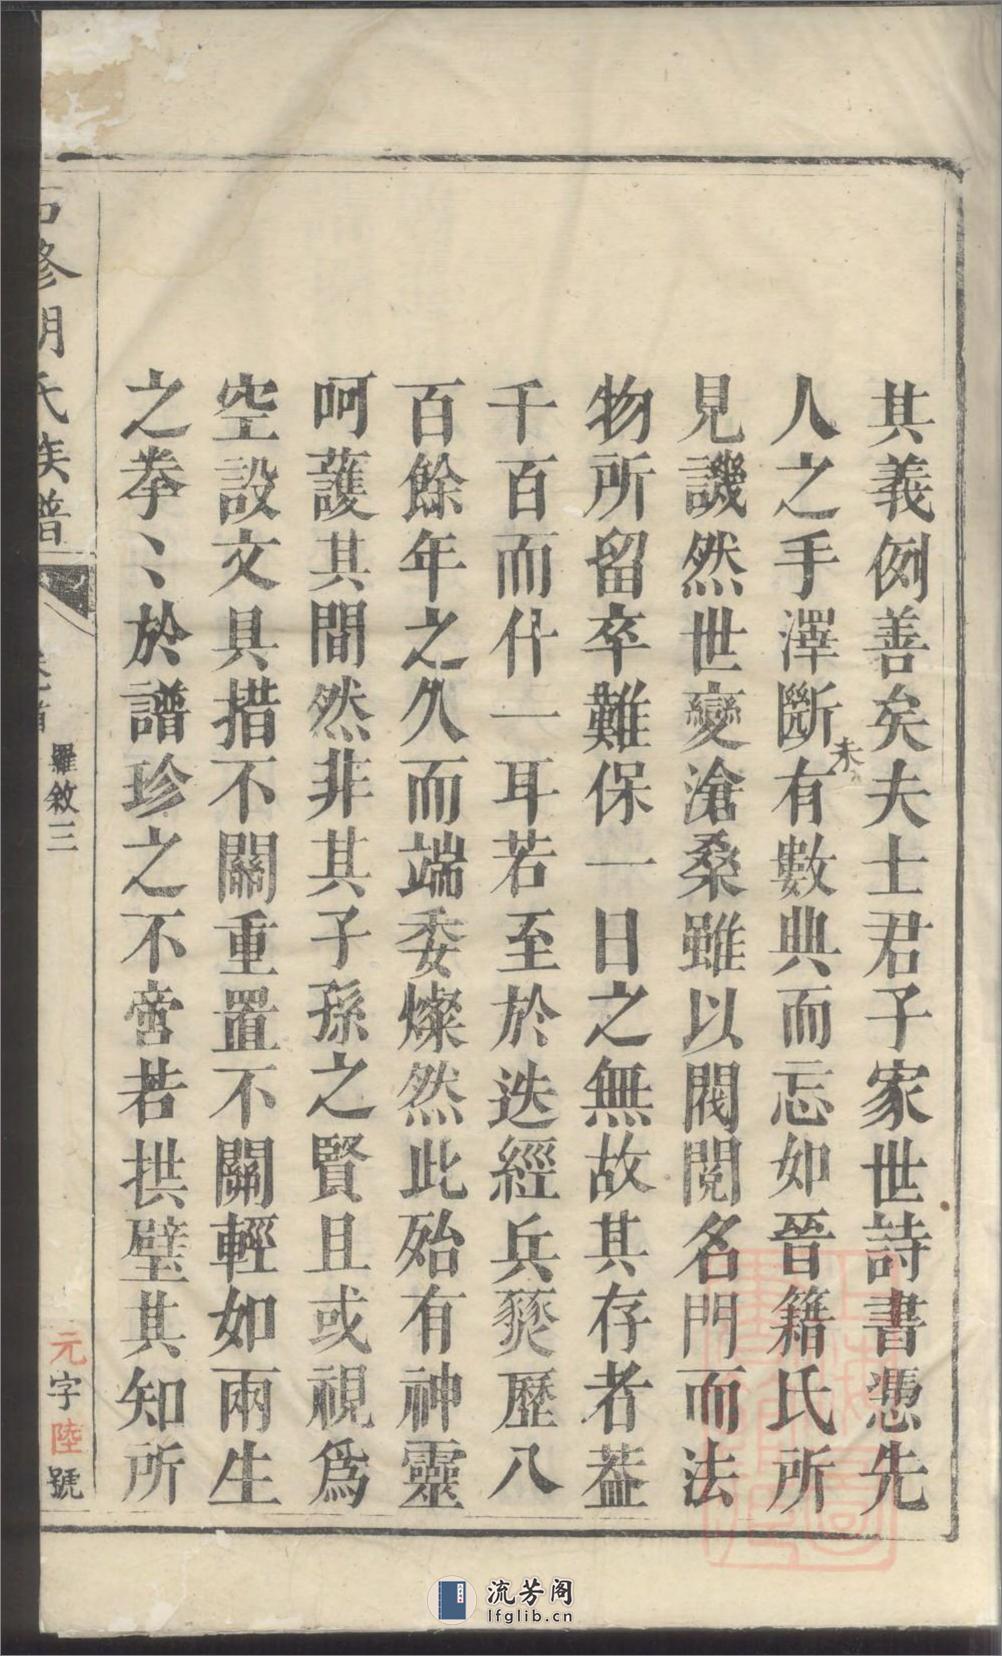 其義例善矣夫士君子家世詩書憑先
人之手澤斷未有數典而忘如晉籍氏所
見譏然世變滄桑雖以閥閱名門而法
物所留卒難保一日之無故其存者葢
千百而什一耳若至於迭經兵燹歷八
百餘年之久而端委燦然此殆有神靈
呵護其間然非其子孫之賢且或視為
空設文具措不關重置不關輕如兩生
之拳〻於譜珍之不啻若拱璧其知所
修胡氏族譜
卷首
羅敘三
元字陸號
流芳阁
lfglib.cn